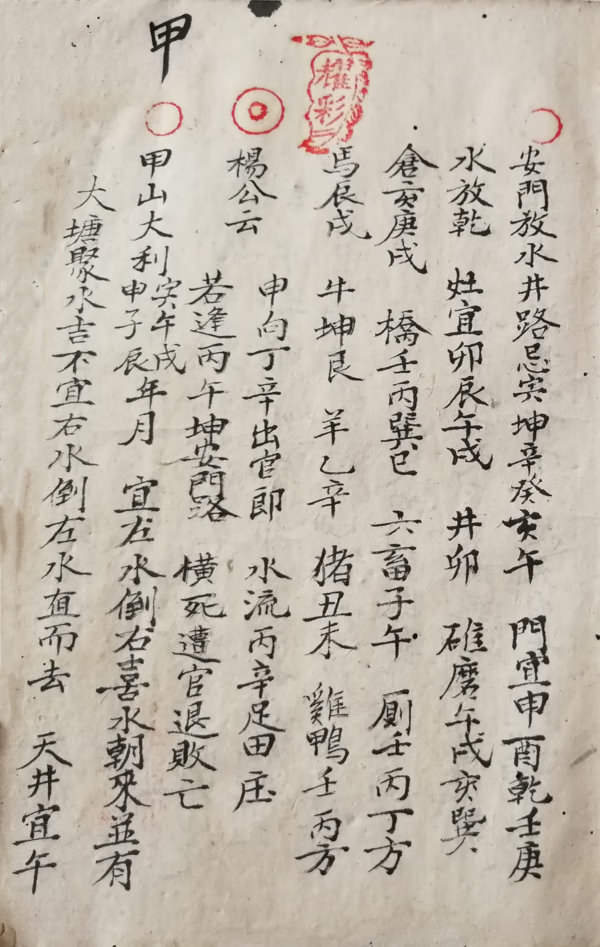 安門放水井路忌寅坤辛癸亥午 門宜申酉乾壬庚
水放乾 灶宜卯辰午戌 井卯 碓磨午戌亥巽
倉亥庚戌 橋壬丙巽巳 六畜子午 厠壬丙丁方
耀彩
馬辰戌 牛坤艮 羊乙辛 猪丑未 雞鴨壬丙方
楊公云 申向丁辛出官郎 水流丙辛足田庄
若逢丙午坤安門路 橫死遭官退敗亡
甲
甲山大利寅午戌申子辰年月 宜左水倒右喜水朝來並有
大塘聚水吉不宜右水倒左水直而去 天井宜午